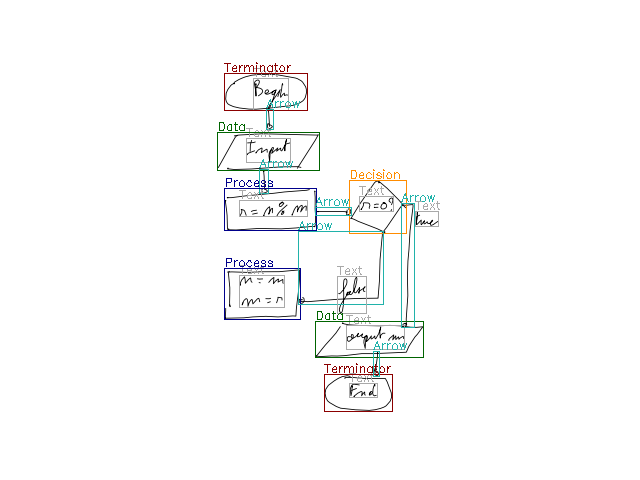 Terminator
Text
Begin
Arrow
Data
Text
Input
Arrow
Process
Text
r = n % m
Arrow
Decision
Text
r = 0?
Arrow
Text
true
Arrow
Process
Text
n = m
m = r
Text
false
Data
Text
output m
Arrow
Terminator
Text
End